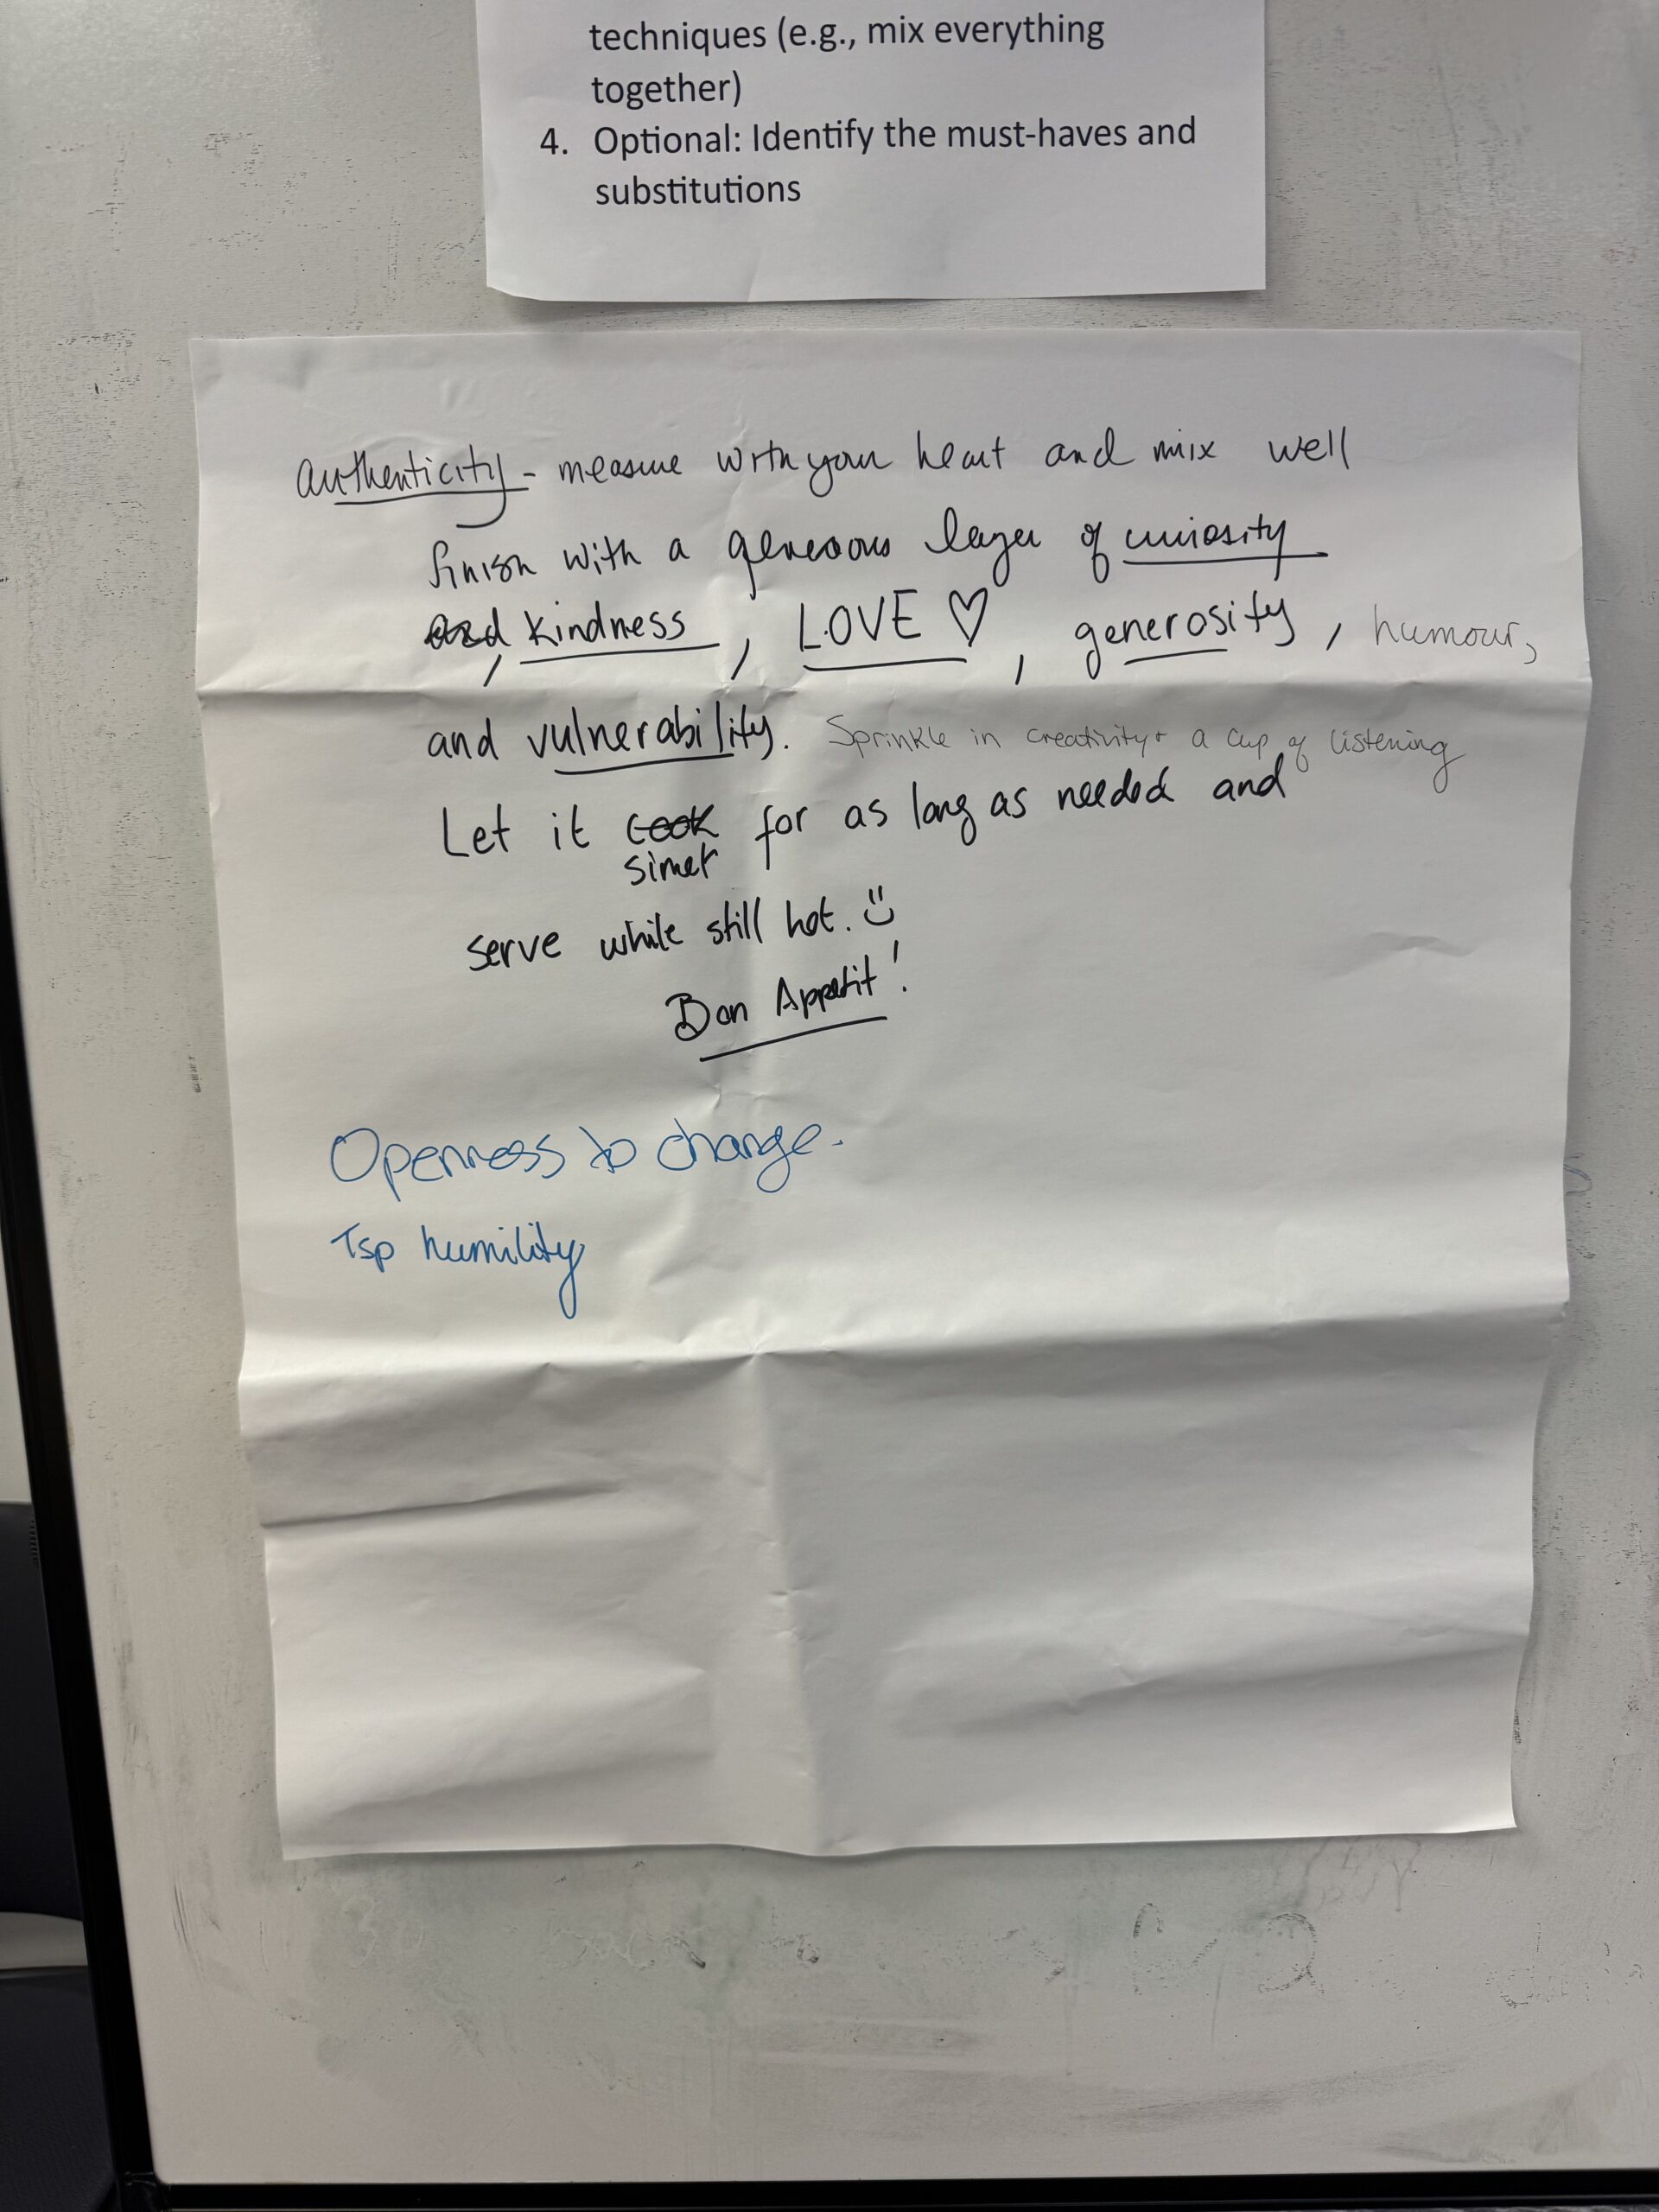 techniques (e.g., mix everything
together)
4. Optional: Identify the must-haves and
substitutions
authenticity - measure with your heart and mix well
finish with a generous layer of curiosity
and, kindness, LOVE ♡, generosity, humour,
and vulnerability. Sprinkle in creativity + a cup of listening
Let it cook for as long as needed and
simer
serve while still hot.
Bon Appetit!
Openness to change.
Tsp humility